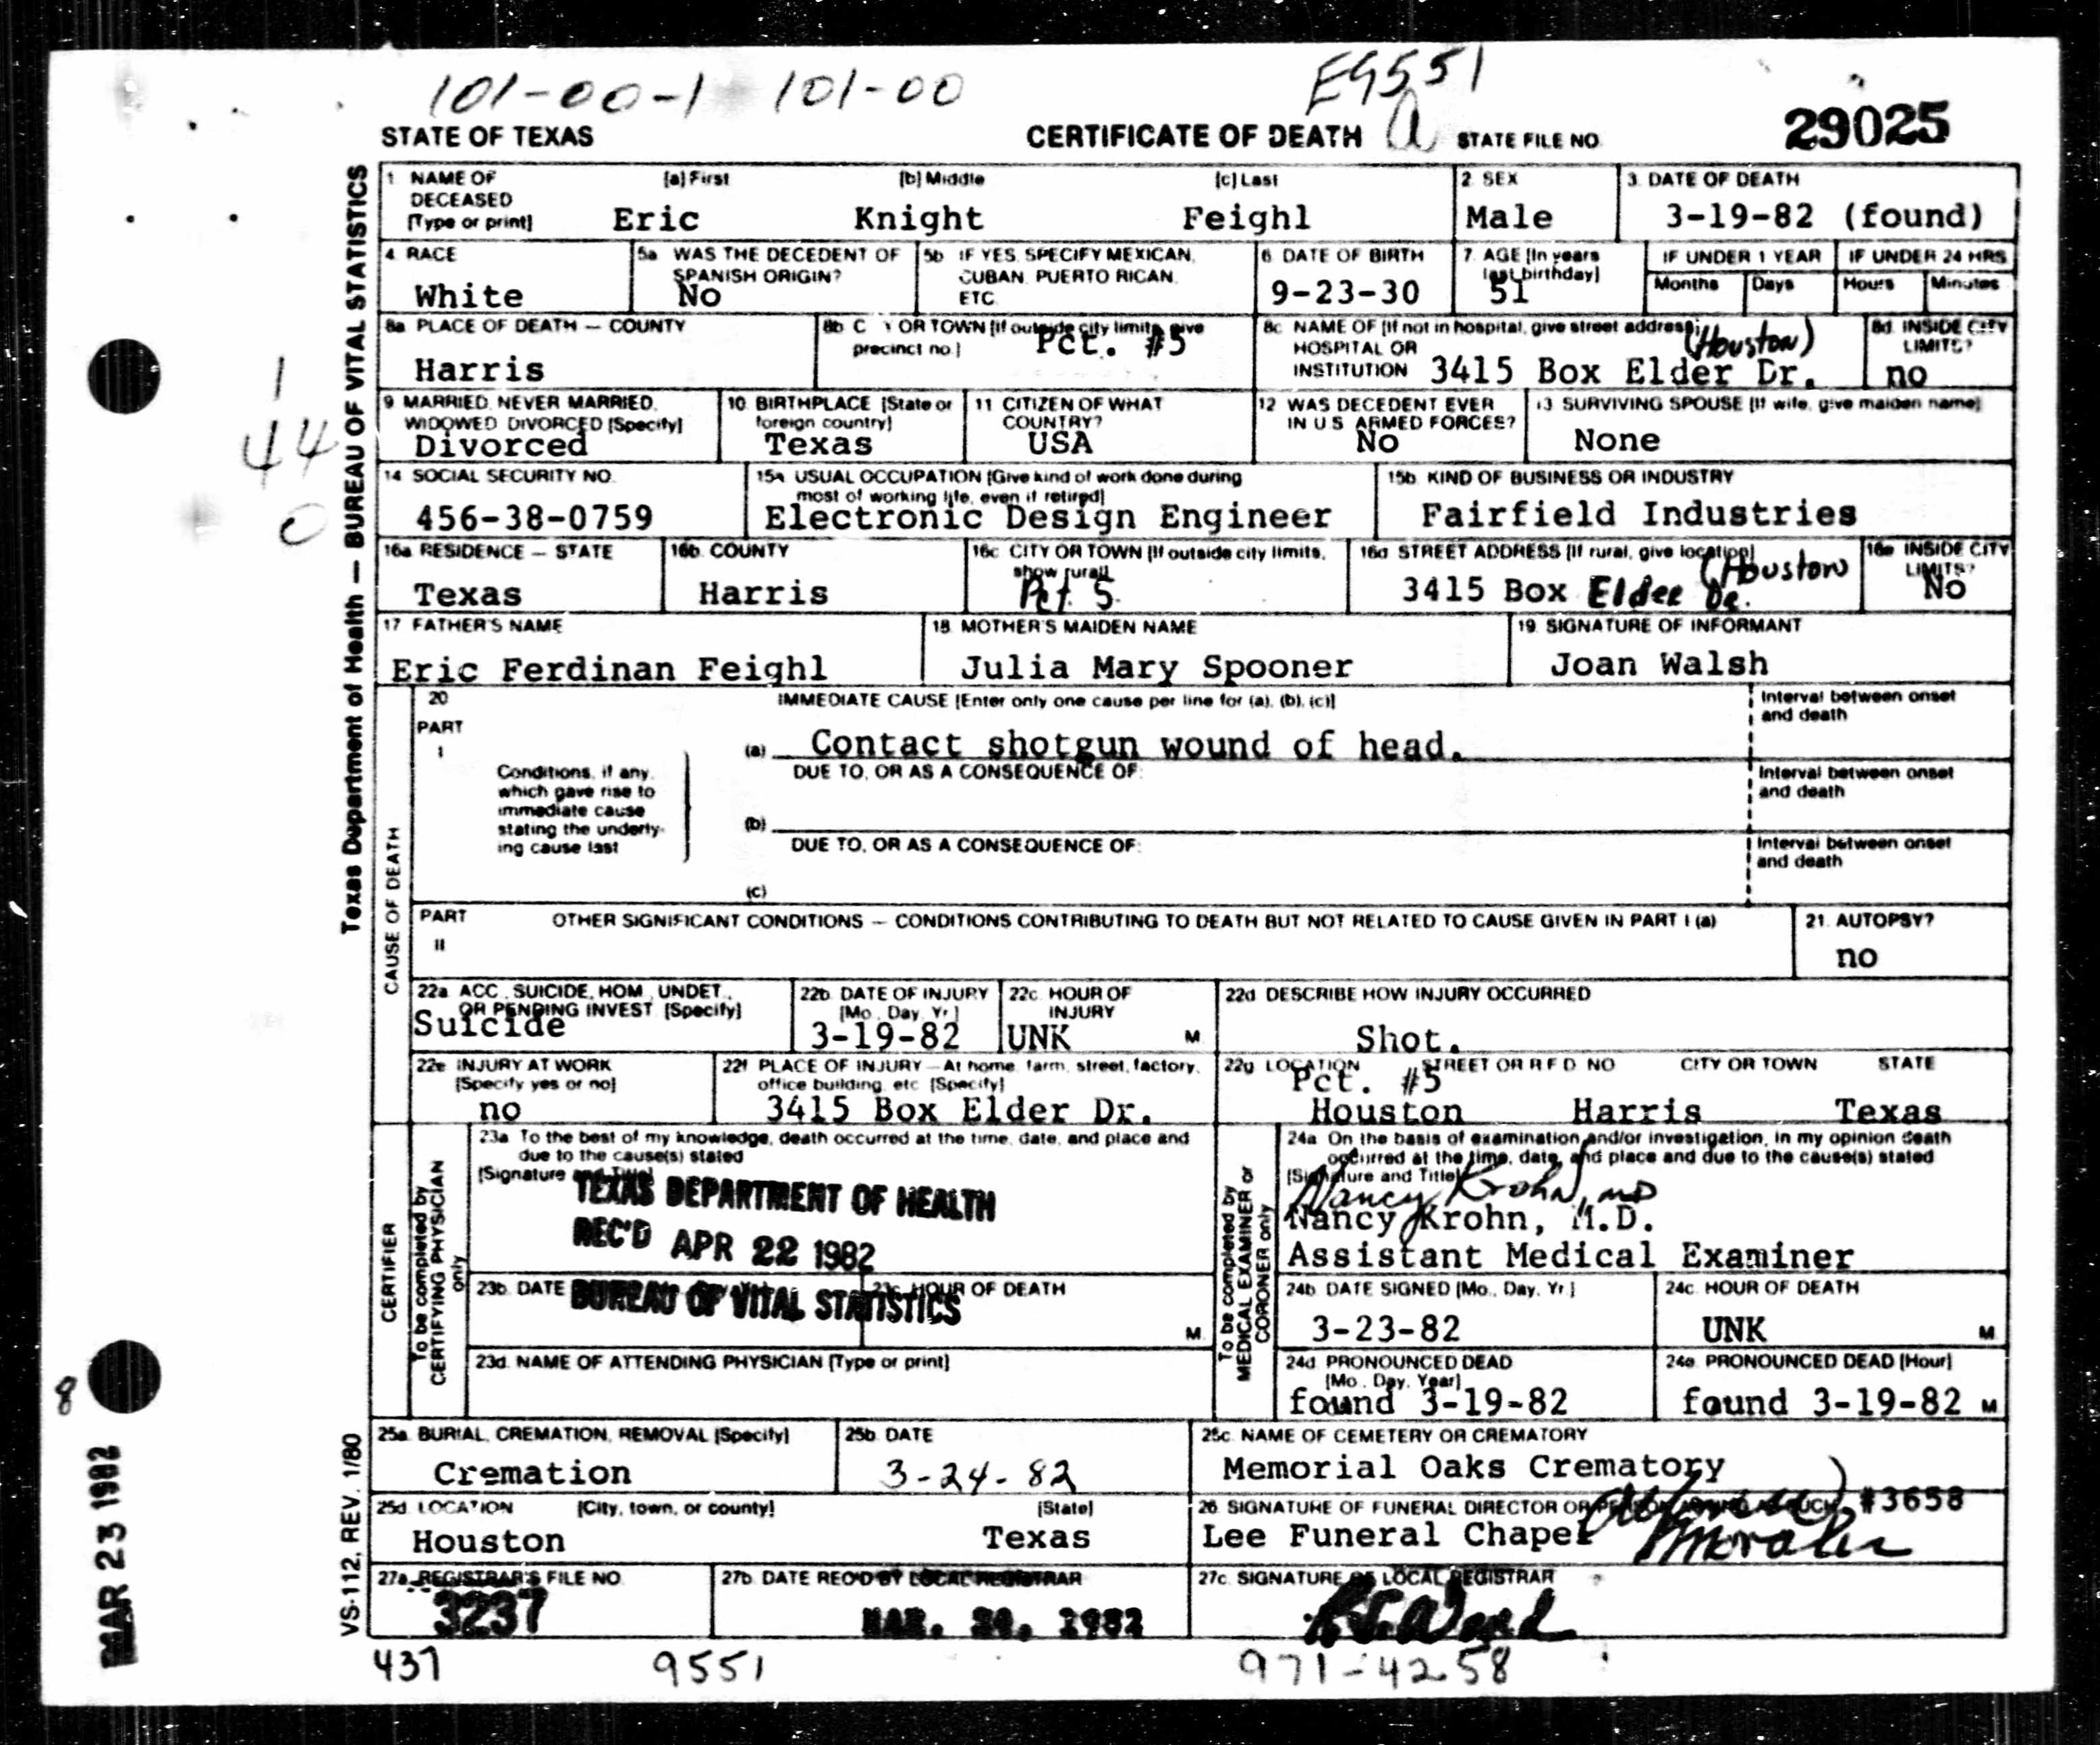 101-00-1 101-00 E9551
STATE OF TEXAS CERTIFICATE OF DEATH a STATE FILE NO. 29025
Texas Department of Health — BUREAU OF VITAL STATISTICS
1 NAME OF DECEASED [Type or print] (a) First (b) Middle (c) Last 2 SEX 3. DATE OF DEATH
Eric Knight Feighl Male 3-19-82 (found)
4 RACE 5a WAS THE DECEDENT OF SPANISH ORIGIN? 5b IF YES, SPECIFY MEXICAN, CUBAN, PUERTO RICAN, ETC 6 DATE OF BIRTH 7. AGE [In years last birthday] IF UNDER 1 YEAR IF UNDER 24 HRS
Months Days Hours Minutes
White No 9-23-30 51
8a PLACE OF DEATH — COUNTY 8b C Y OR TOWN [If outside city limits, give precinct no.] 8c NAME OF [If not in hospital, give street address] HOSPITAL OR INSTITUTION 8d INSIDE CITY LIMITS?
Harris Pct. #5 3415 Box Elder Dr. (Houston) no
1
44
0
9 MARRIED, NEVER MARRIED, WIDOWED, DIVORCED [Specify] 10 BIRTHPLACE [State or foreign country] 11 CITIZEN OF WHAT COUNTRY? 12 WAS DECEDENT EVER IN U S ARMED FORCES? 13 SURVIVING SPOUSE [If wife, give maiden name]
Divorced Texas USA No None
14 SOCIAL SECURITY NO. 15a USUAL OCCUPATION [Give kind of work done during most of working life, even if retired] 15b KIND OF BUSINESS OR INDUSTRY
456-38-0759 Electronic Design Engineer Fairfield Industries
16a RESIDENCE — STATE 16b COUNTY 16c CITY OR TOWN [If outside city limits, show rural] 16d STREET ADDRESS [If rural, give location] 16e INSIDE CITY LIMITS?
Texas Harris Pct 5 3415 Box Elder Dr. (Houston No
17 FATHER'S NAME 18 MOTHER'S MAIDEN NAME 19. SIGNATURE OF INFORMANT
Eric Ferdinan Feighl Julia Mary Spooner Joan Walsh
CAUSE OF DEATH
20 PART I IMMEDIATE CAUSE [Enter only one cause per line for (a), (b), (c)] Interval between onset and death
(a) Contact shotgun wound of head.
Conditions, if any, which gave rise to immediate cause stating the underlying cause last
DUE TO, OR AS A CONSEQUENCE OF: Interval between onset and death
(b)
DUE TO, OR AS A CONSEQUENCE OF: Interval between onset and death
(c)
PART II OTHER SIGNIFICANT CONDITIONS — CONDITIONS CONTRIBUTING TO DEATH BUT NOT RELATED TO CAUSE GIVEN IN PART I (a) 21. AUTOPSY?
no
22a ACC., SUICIDE, HOM., UNDET., OR PENDING INVEST. [Specify] 22b DATE OF INJURY [Mo., Day, Yr.] 22c HOUR OF INJURY 22d DESCRIBE HOW INJURY OCCURRED
Suicide 3-19-82 UNK M Shot.
22e INJURY AT WORK [Specify yes or no] 22f PLACE OF INJURY — At home, farm, street, factory, office building, etc [Specify] 22g LOCATION STREET OR R F D NO CITY OR TOWN STATE
Pct. #5
no 3415 Box Elder Dr. Houston Harris Texas
CERTIFIER
To be completed by CERTIFYING PHYSICIAN only
23a To the best of my knowledge, death occurred at the time, date, and place and due to the cause(s) stated
[Signature and Title]
TEXAS DEPARTMENT OF HEALTH
REC'D APR 22 1982
BUREAU OF VITAL STATISTICS
23b DATE 23c HOUR OF DEATH M
23d. NAME OF ATTENDING PHYSICIAN [Type or print]
To be completed by MEDICAL EXAMINER or CORONER only
24a On the basis of examination and/or investigation, in my opinion death occurred at the time, date, and place and due to the cause(s) stated
[Signature and Title]
Nancy Krohn, MD
Nancy Krohn, M.D.
Assistant Medical Examiner
24b DATE SIGNED [Mo., Day, Yr.] 24c. HOUR OF DEATH
3-23-82 UNK M
24d. PRONOUNCED DEAD [Mo., Day, Year] 24e. PRONOUNCED DEAD [Hour]
found 3-19-82 found 3-19-82 M
8
MAR 23 1982
VS-112, REV. 1/80
25a. BURIAL, CREMATION, REMOVAL [Specify] 25b DATE 25c NAME OF CEMETERY OR CREMATORY
Cremation 3-24-82 Memorial Oaks Crematory
25d LOCATION [City, town, or county] [State] 26 SIGNATURE OF FUNERAL DIRECTOR OR
Houston Texas Lee Funeral Chapel Morales #3658
27a REGISTRAR'S FILE NO. 27b DATE REC'D BY LOCAL REGISTRAR 27c. SIGNATURE OF LOCAL REGISTRAR
3237
437 9551 971-4258